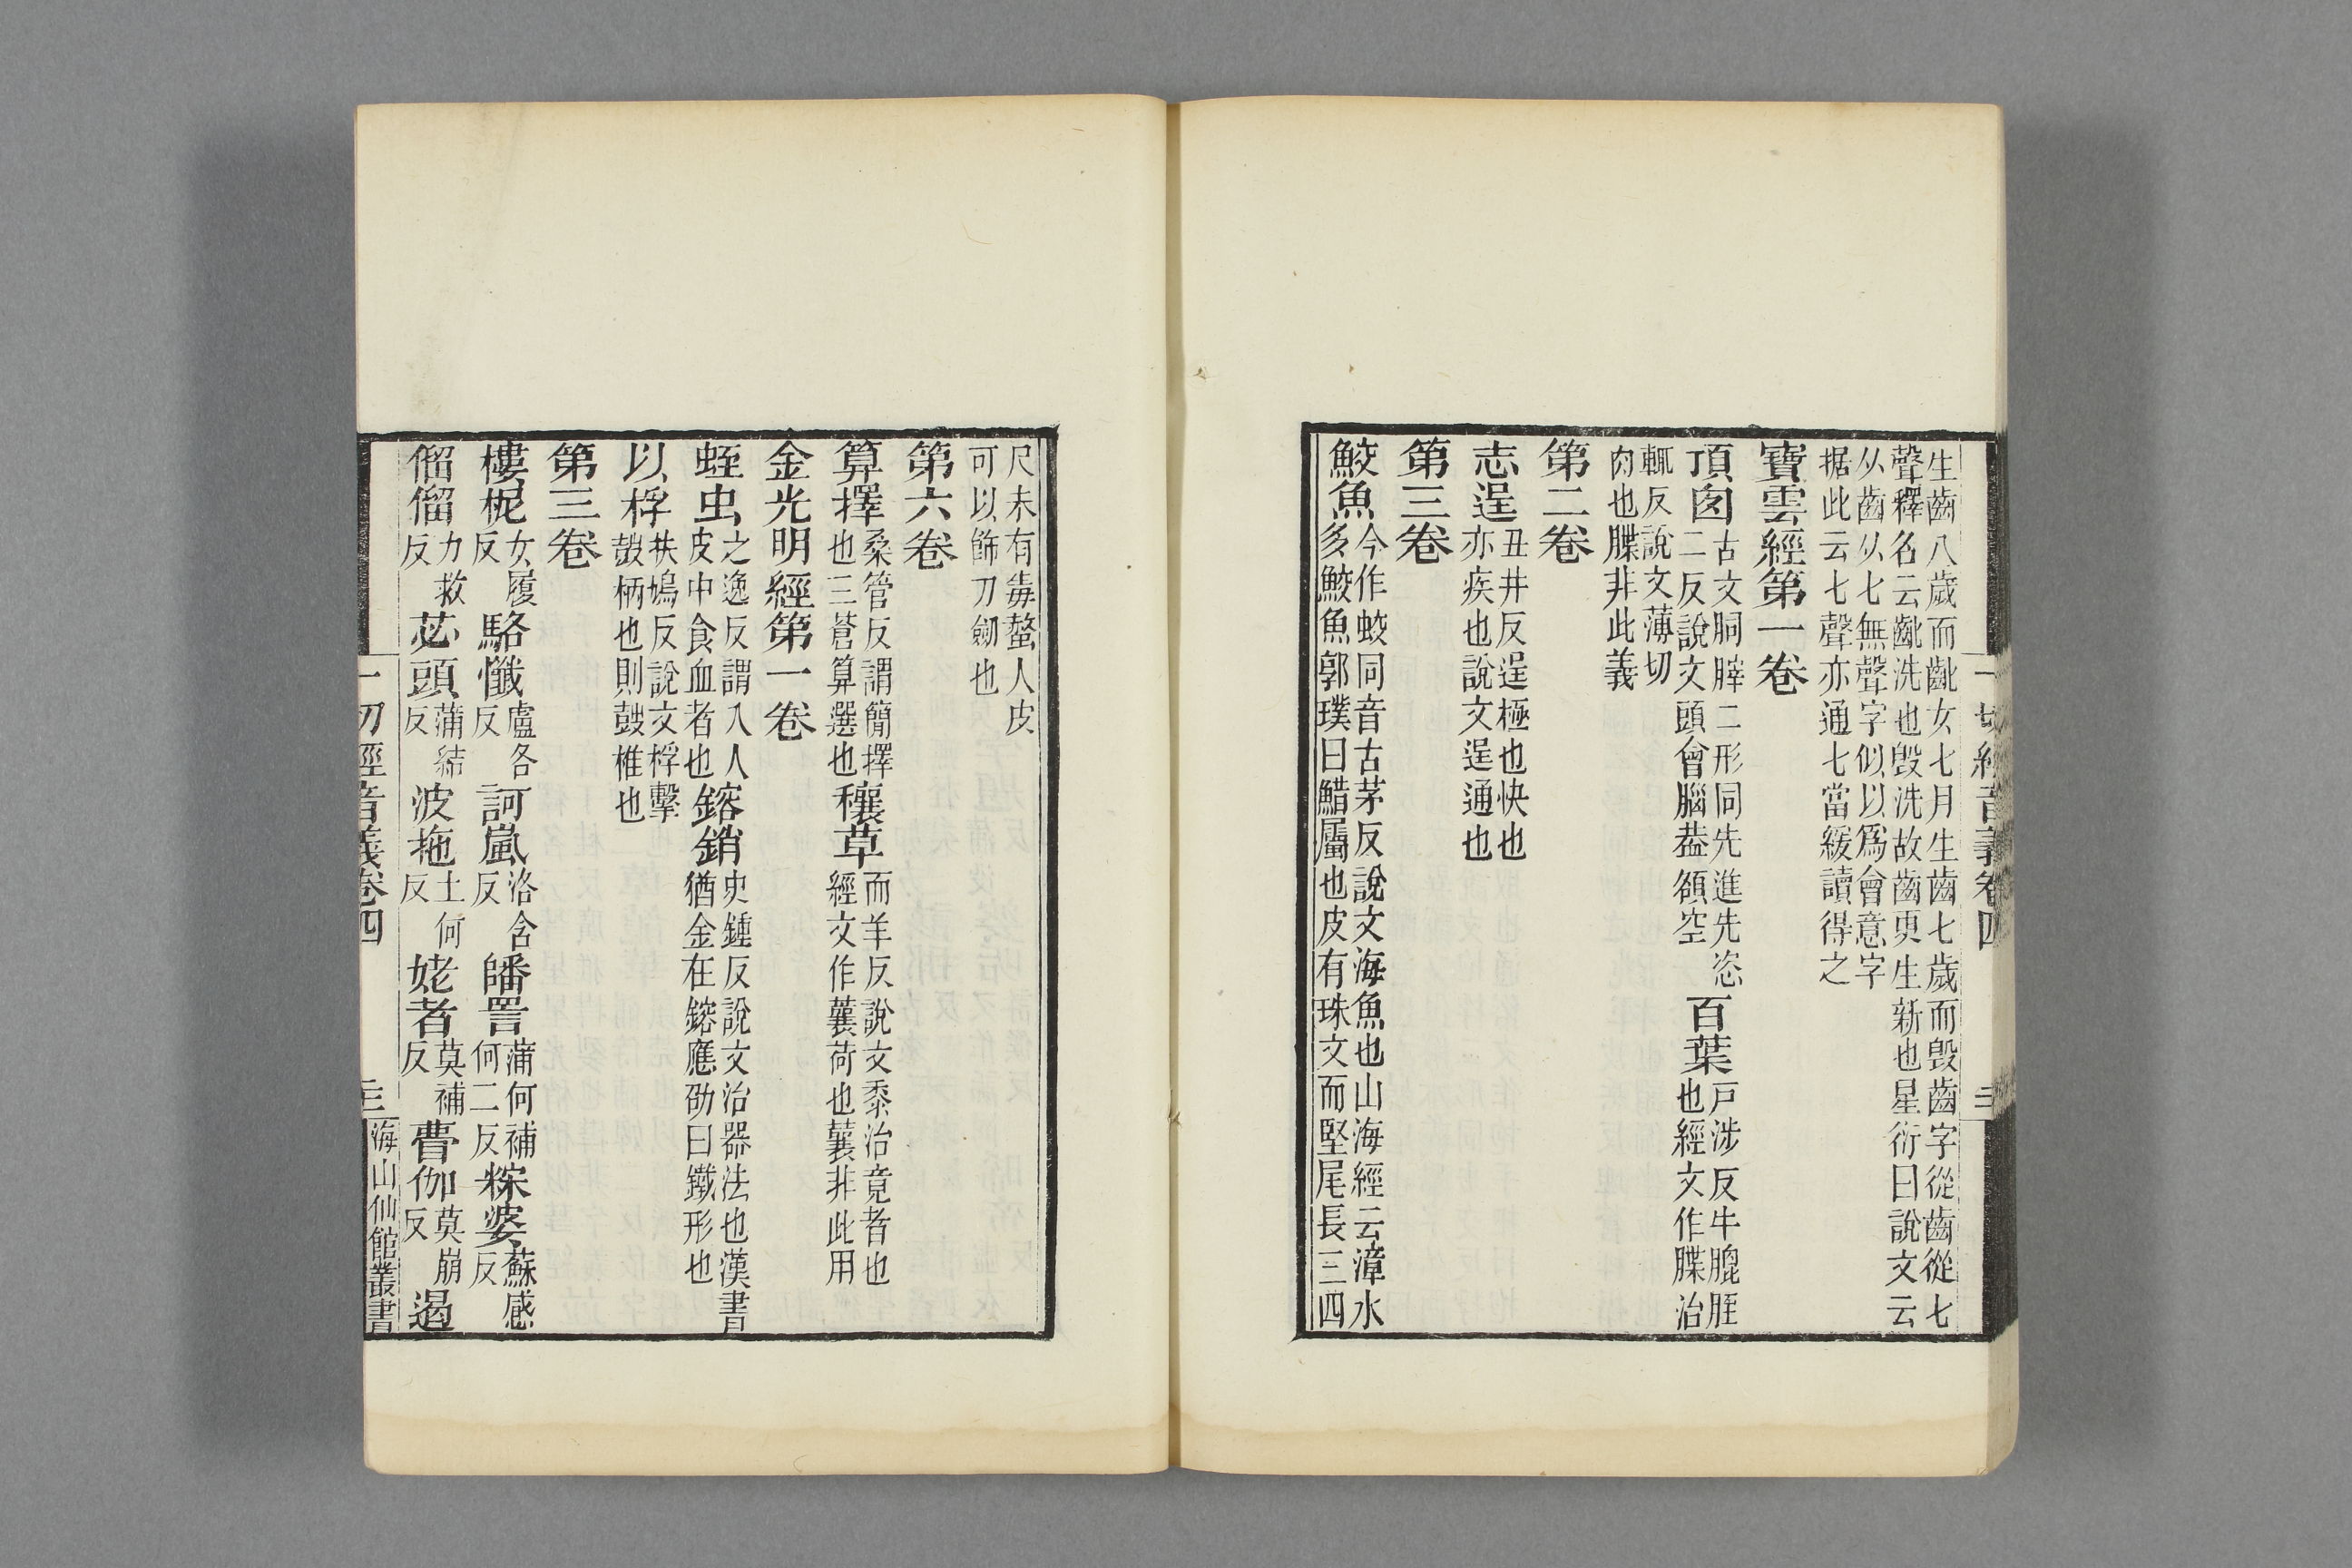 一切經音義卷四 三
生齒八歲而齔女七月生齒七歲而毀齒字從齒從七
聲釋名云齔洗也毀洗故齒更生新也星衍曰說文云
从齒从七無聲字似以爲會意字
据此云七聲亦通七當緩讀得之
寶雲經第一卷
頂囟古文胴𦞤二形同先進先恣二反說文頭會腦葢頟空百葉戶涉反牛膍胵也經文作䐑治
輒反說文薄切
肉也䐑非此義
第二卷
志逞丑井反逞極也快也亦疾也說文逞通也
第三卷
鮫魚今作蛟同音古茅反說文海魚也山海經云漳水多鮫魚郭璞曰鯌屬也皮有珠文而堅尾長三四
尺未有毒螫人皮
可以飾刀劒也
第六卷
算擇桑管反謂簡擇也三蒼算選也穰草而羊反說文黍治竟者也經文作蘘荷也蘘非此用
金光明經第一卷
蛭虫之逸反謂入人皮中食血者也鎔銷史鍾反說文治器法也漢書猶金在鎔應劭曰鐵形也
以桴扶鳩反說文桴擊鼓柄也則鼓椎也
第三卷
樓柅女履反駱懺盧各反訶嵐洛含反皤詈蒲何補何二反䅽婆蘇感反
㑠㑠力救反苾頭蒲結反波拖土何反姥者莫補反瞢伽莫崩反遏
一切經音義卷四 三 海山仙館叢書